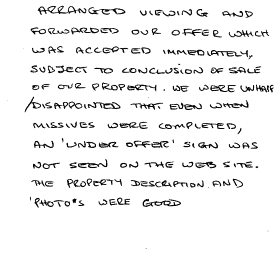 ARRANGED VIEWING AND
FORWARDED OUR OFFER WHICH
WAS ACCEPTED IMMEDIATELY,
SUBJECT TO CONCLUSION OF SALE
OF OUR PROPERTY. WE WERE UNHAP
/DISAPPOINTED THAT EVEN WHEN
MISSIVES WERE COMPLETED,
AN 'UNDER OFFER' SIGN WAS
NOT SEEN ON THE WEB SITE.
THE PROPERTY DESCRIPTION AND
'PHOTO'S WERE GOOD